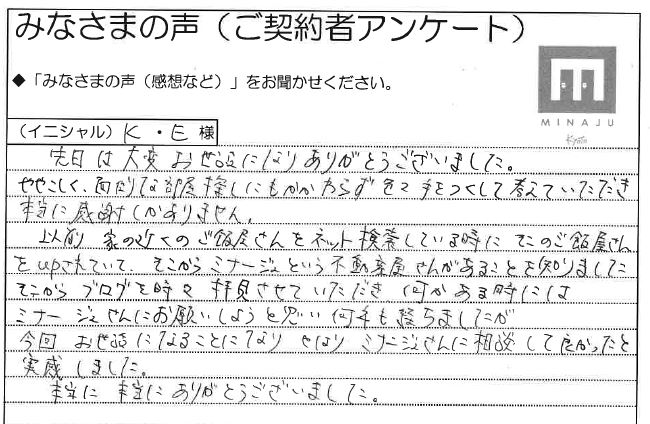 みなさまの声（ご契約者アンケート）
◆「みなさまの声（感想など）」をお聞かせください。
MINAJU
Kyoto
（イニシャル）K・E様
先日は大変お世話になりありがとうございました。
ややこしく、面倒な部屋探しにもかかわらず色々手をつくして考えていただき
本当に感謝しかありません。
以前 家の近くのご飯屋さんをネット検索している時に そこのご飯屋さん
をupされていて、そこからミナージュという不動産屋さんがあることを知りました
そこからブログを時々拝見させていただき 何かある時には
ミナージュさんにお願いしようと思い何年も経ちましたが
今回 お世話になることになり やはりミナージュさんに相談して良かったと
実感しました。
本当に 本当にありがとうございました。